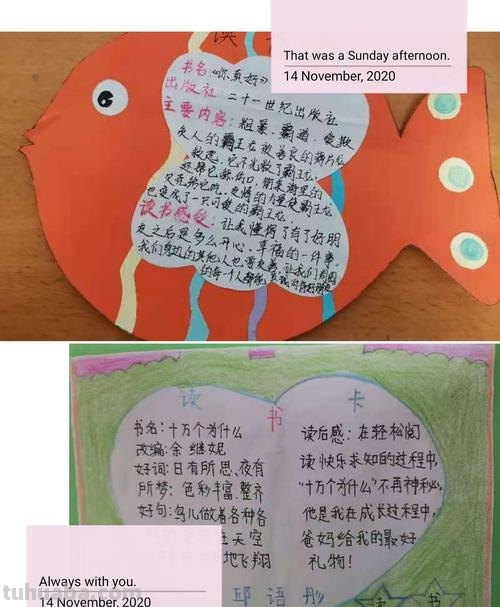 That was a Sunday afternoon.
14 November, 2020
读
书名:《你真好》
出版社:二十一世纪出版社
主要内容:粗暴、霸道、爱欺
负人的霸王龙被善良的薄片龙
救起,它不光救了霸王龙
还替它舔伤口,
贝壳给它吃,友情的力量使霸王龙
也变成了一只可爱的霸王龙。
读书感受:让我懂得了有了好朋
友之后是多么开心、幸福的一件事,
我们身边的其他人也要友善,让我们周围
的每一个人都能
读 书 卡
书名:十万个为什么
改编:余继妮
好词:日有所思、夜有
所梦;色彩丰富、整齐
好句:鸟儿做着各种各
天空
地飞翔
读后感:在轻松阅
读快乐求知的过程中,
"十万个为什么"不再神秘,
他是我在成长过程中,
爸妈给我的最好
礼物!
邱语彤
书
Always with you.
14 November, 2020
tuhuaba.com